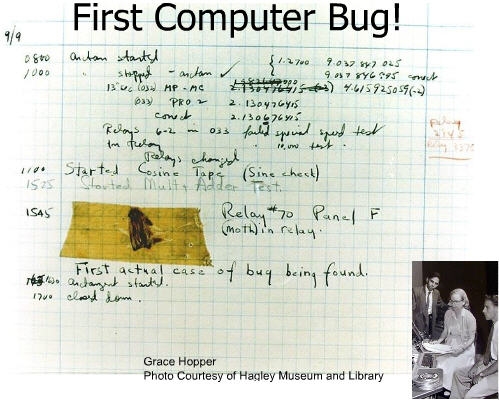 First Computer Bug!
9/9
0800 antan started
1000 " stopped - antan ✓ { 1.2700 9.037 847 025
9.037 846 995 conect
13"uc (032) MP - MC 2.130476415 4.615925059(-2)
(033) PRO 2 2.130476415
conect 2.130676415
Relays 6-2 in 033 failed special speed test
in relay " 10,000 test .
Relays changed
1100 Started Cosine Tape (Sine check)
1525 Started Mult + Adder Test.
1545 Relay #70 Panel F
(moth) in relay.
First actual case of bug being found.
1630 antangent started.
1700 closed down.
Grace Hopper
Photo Courtesy of Hagley Museum and Library